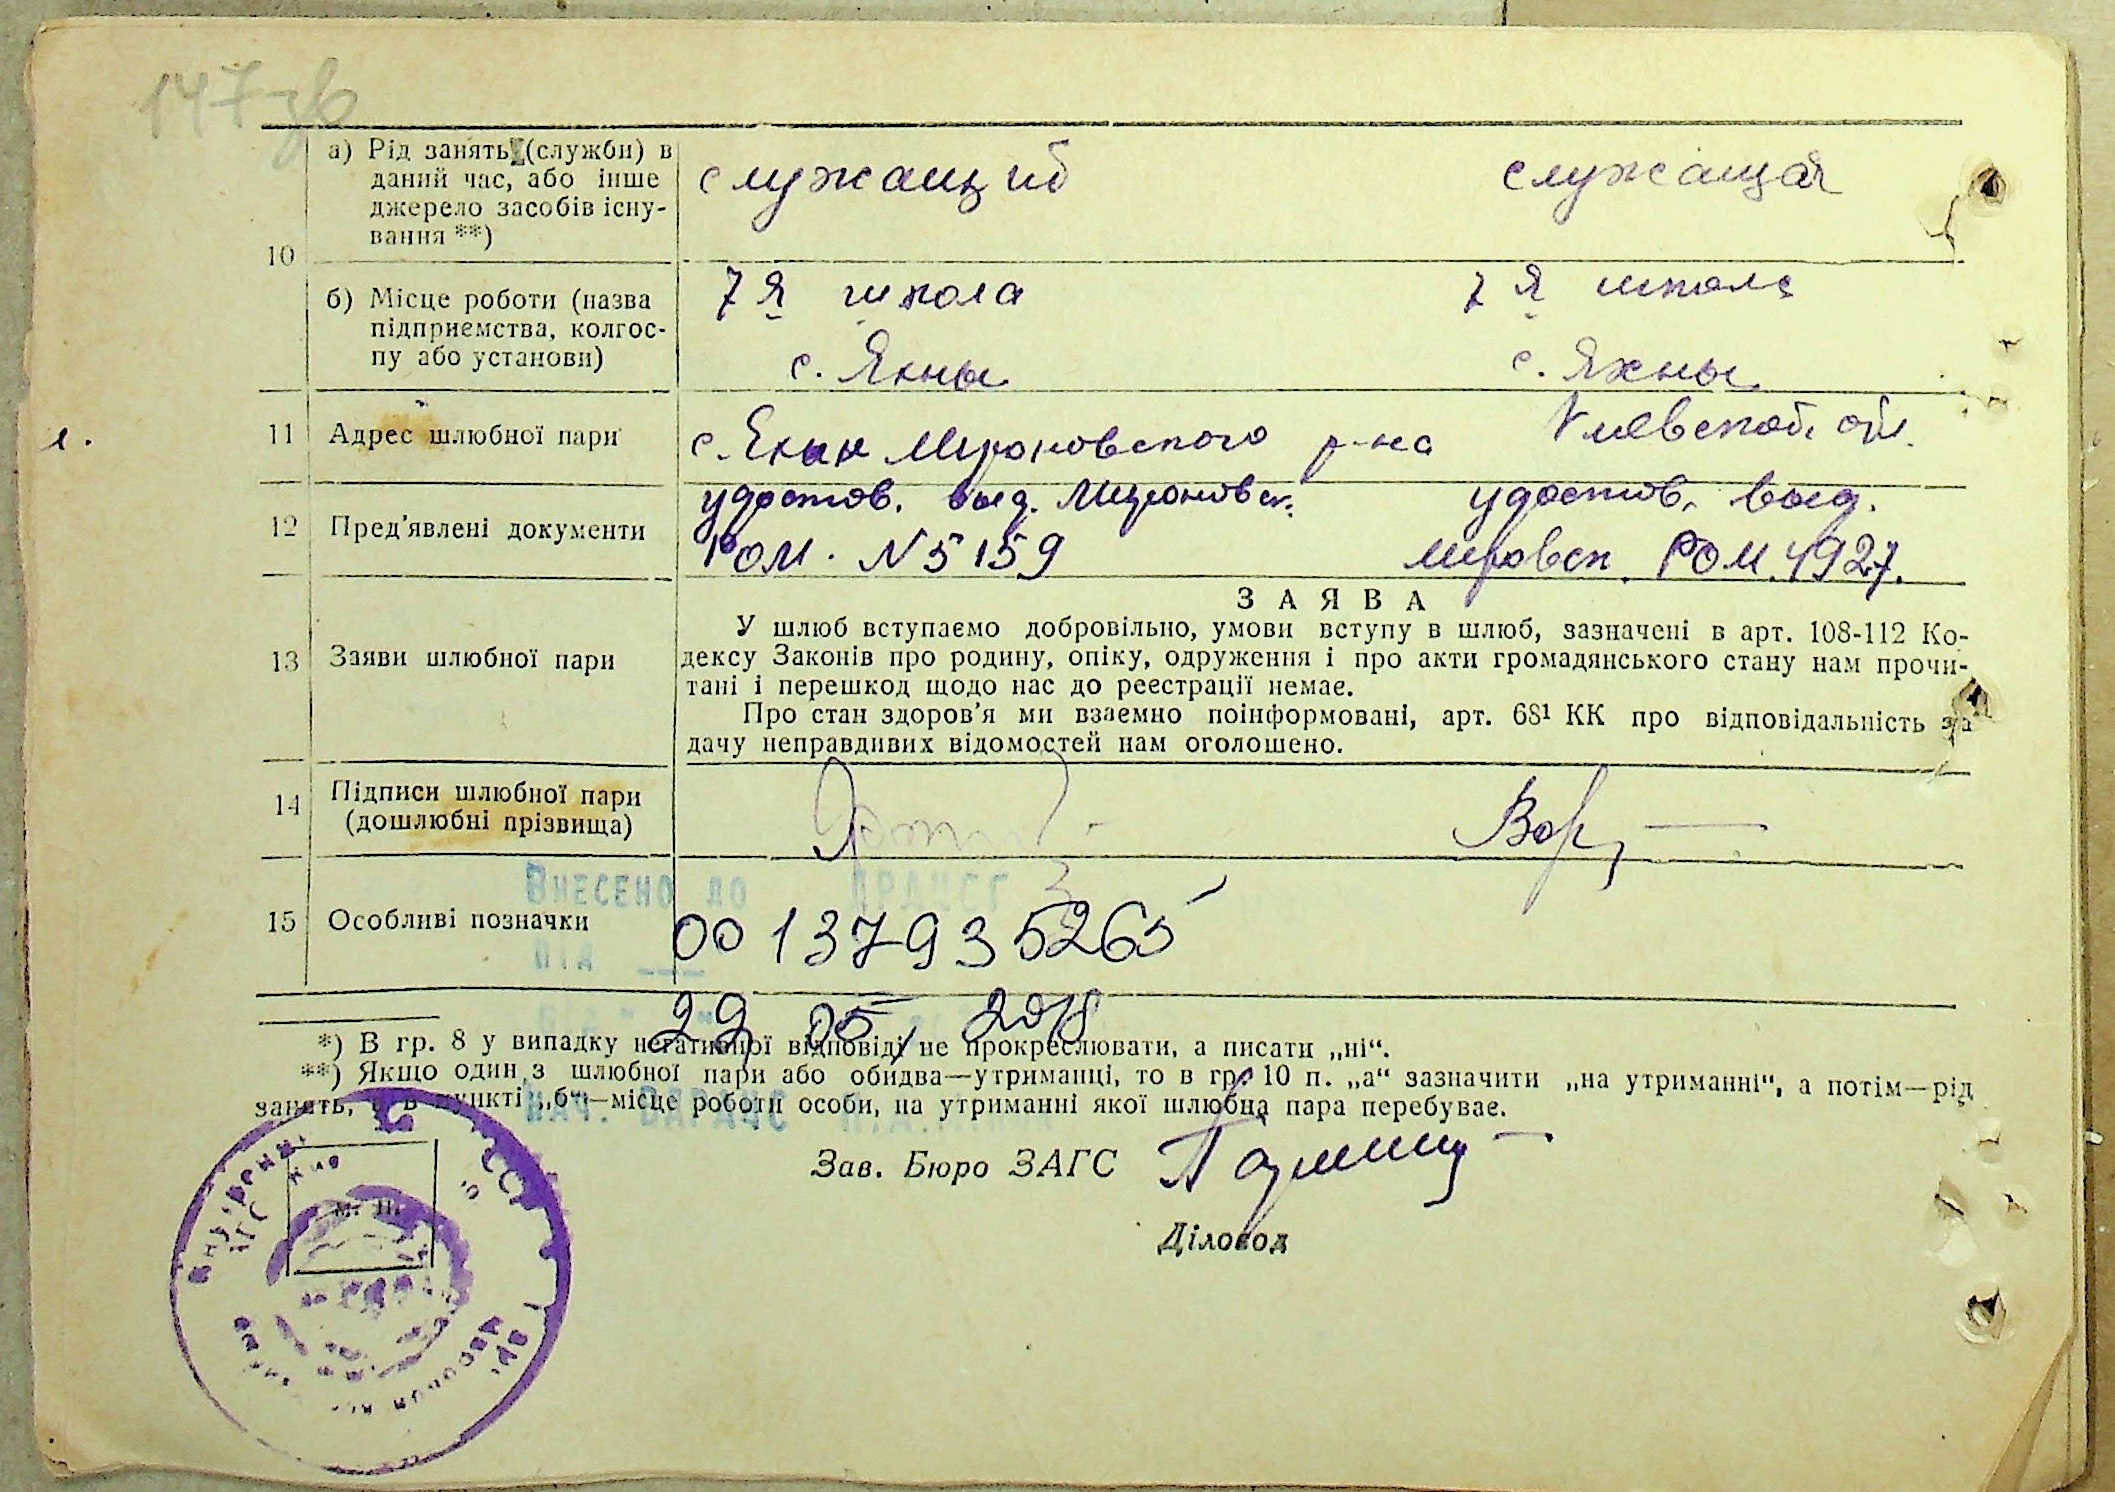 147зв
а) Рід занять (служби) в
даний час, або інше
джерело засобів існу-
вання **)
служащий служащая
10
б) Місце роботи (назва
підприємства, колгос-
пу або установи)
7я школа 7я школа
с. Яхны с. Яхны
11 Адрес шлюбної пари
с. Мироновского р-на Киевской обл.
12 Пред’явлені документи
удостов. выд. Мироновск. удостов. выд.
РОМ. N5159 РОМ. 4927.
ЗАЯВА
13 Заяви шлюбної пари
У шлюб вступаємо добровільно, умови вступу в шлюб, зазначені в арт. 108-112 Ко-
дексу Законів про родину, опіку, одруження і про акти громадянського стану нам прочи-
тані і перешкод щодо нас до реєстрації немає.
Про стан здоров’я ми взаємно поінформовані, арт. 68¹ КК про відповідальність за
дачу неправдивих відомостей нам оголошено.
14 Підписи шлюбної пари
(дошлюбні прізвища)
Внесено до ДРАЦСГ
15 Особливі позначки
00137935265
29 05, 2018
*) В гр. 8 у випадку негативної відповіді не прокреслювати, а писати „ні“.
**) Якщо один з шлюбної пари або обидва—утриманці, то в гр. 10 п. „а“ зазначити „на утриманні“, а потім—рід
занять, а в пункті „б“—місце роботи особи, на утриманні якої шлюбна пара перебуває.
Зав. Бюро ЗАГС
Діловод